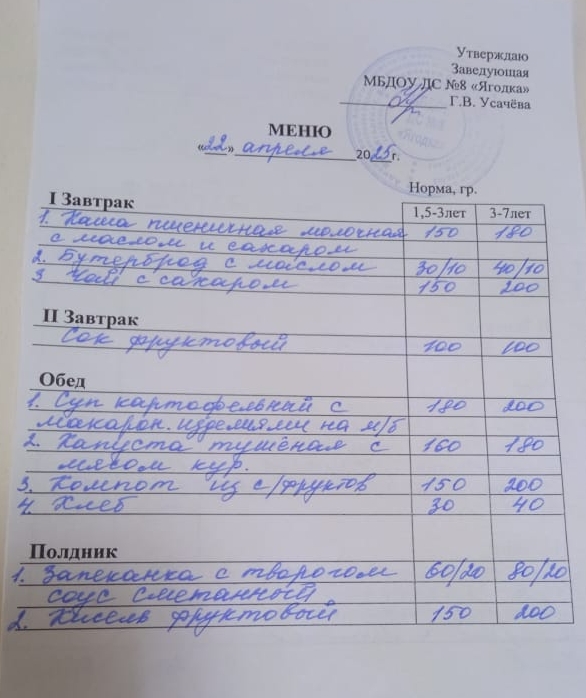 Утверждаю
Заведующая
МБДОУ ДС №8 «Ягодка»
Г.В. Усачёва
МЕНЮ
«22» апреля 2025г.
Норма, гр.
I Завтрак 1,5-3лет 3-7лет
1. Каша пшеничная молочная 150 180
с маслом и сахаром
2. Бутерброд с маслом 30/10 40/10
3 Чай с сахаром 150 200
II Завтрак
Сок фруктовый 100 100
Обед
1. Суп картофельный с 180 200
макарон. изделиями на м/б
2. Капуста тушёная с 160 180
мясом кур.
3. Компот из с/фруктов 150 200
4. Хлеб 30 40
Полдник
1. Запеканка с творогом 60/20 80/20
соус сметанный
2. Кисель фруктовый 150 200